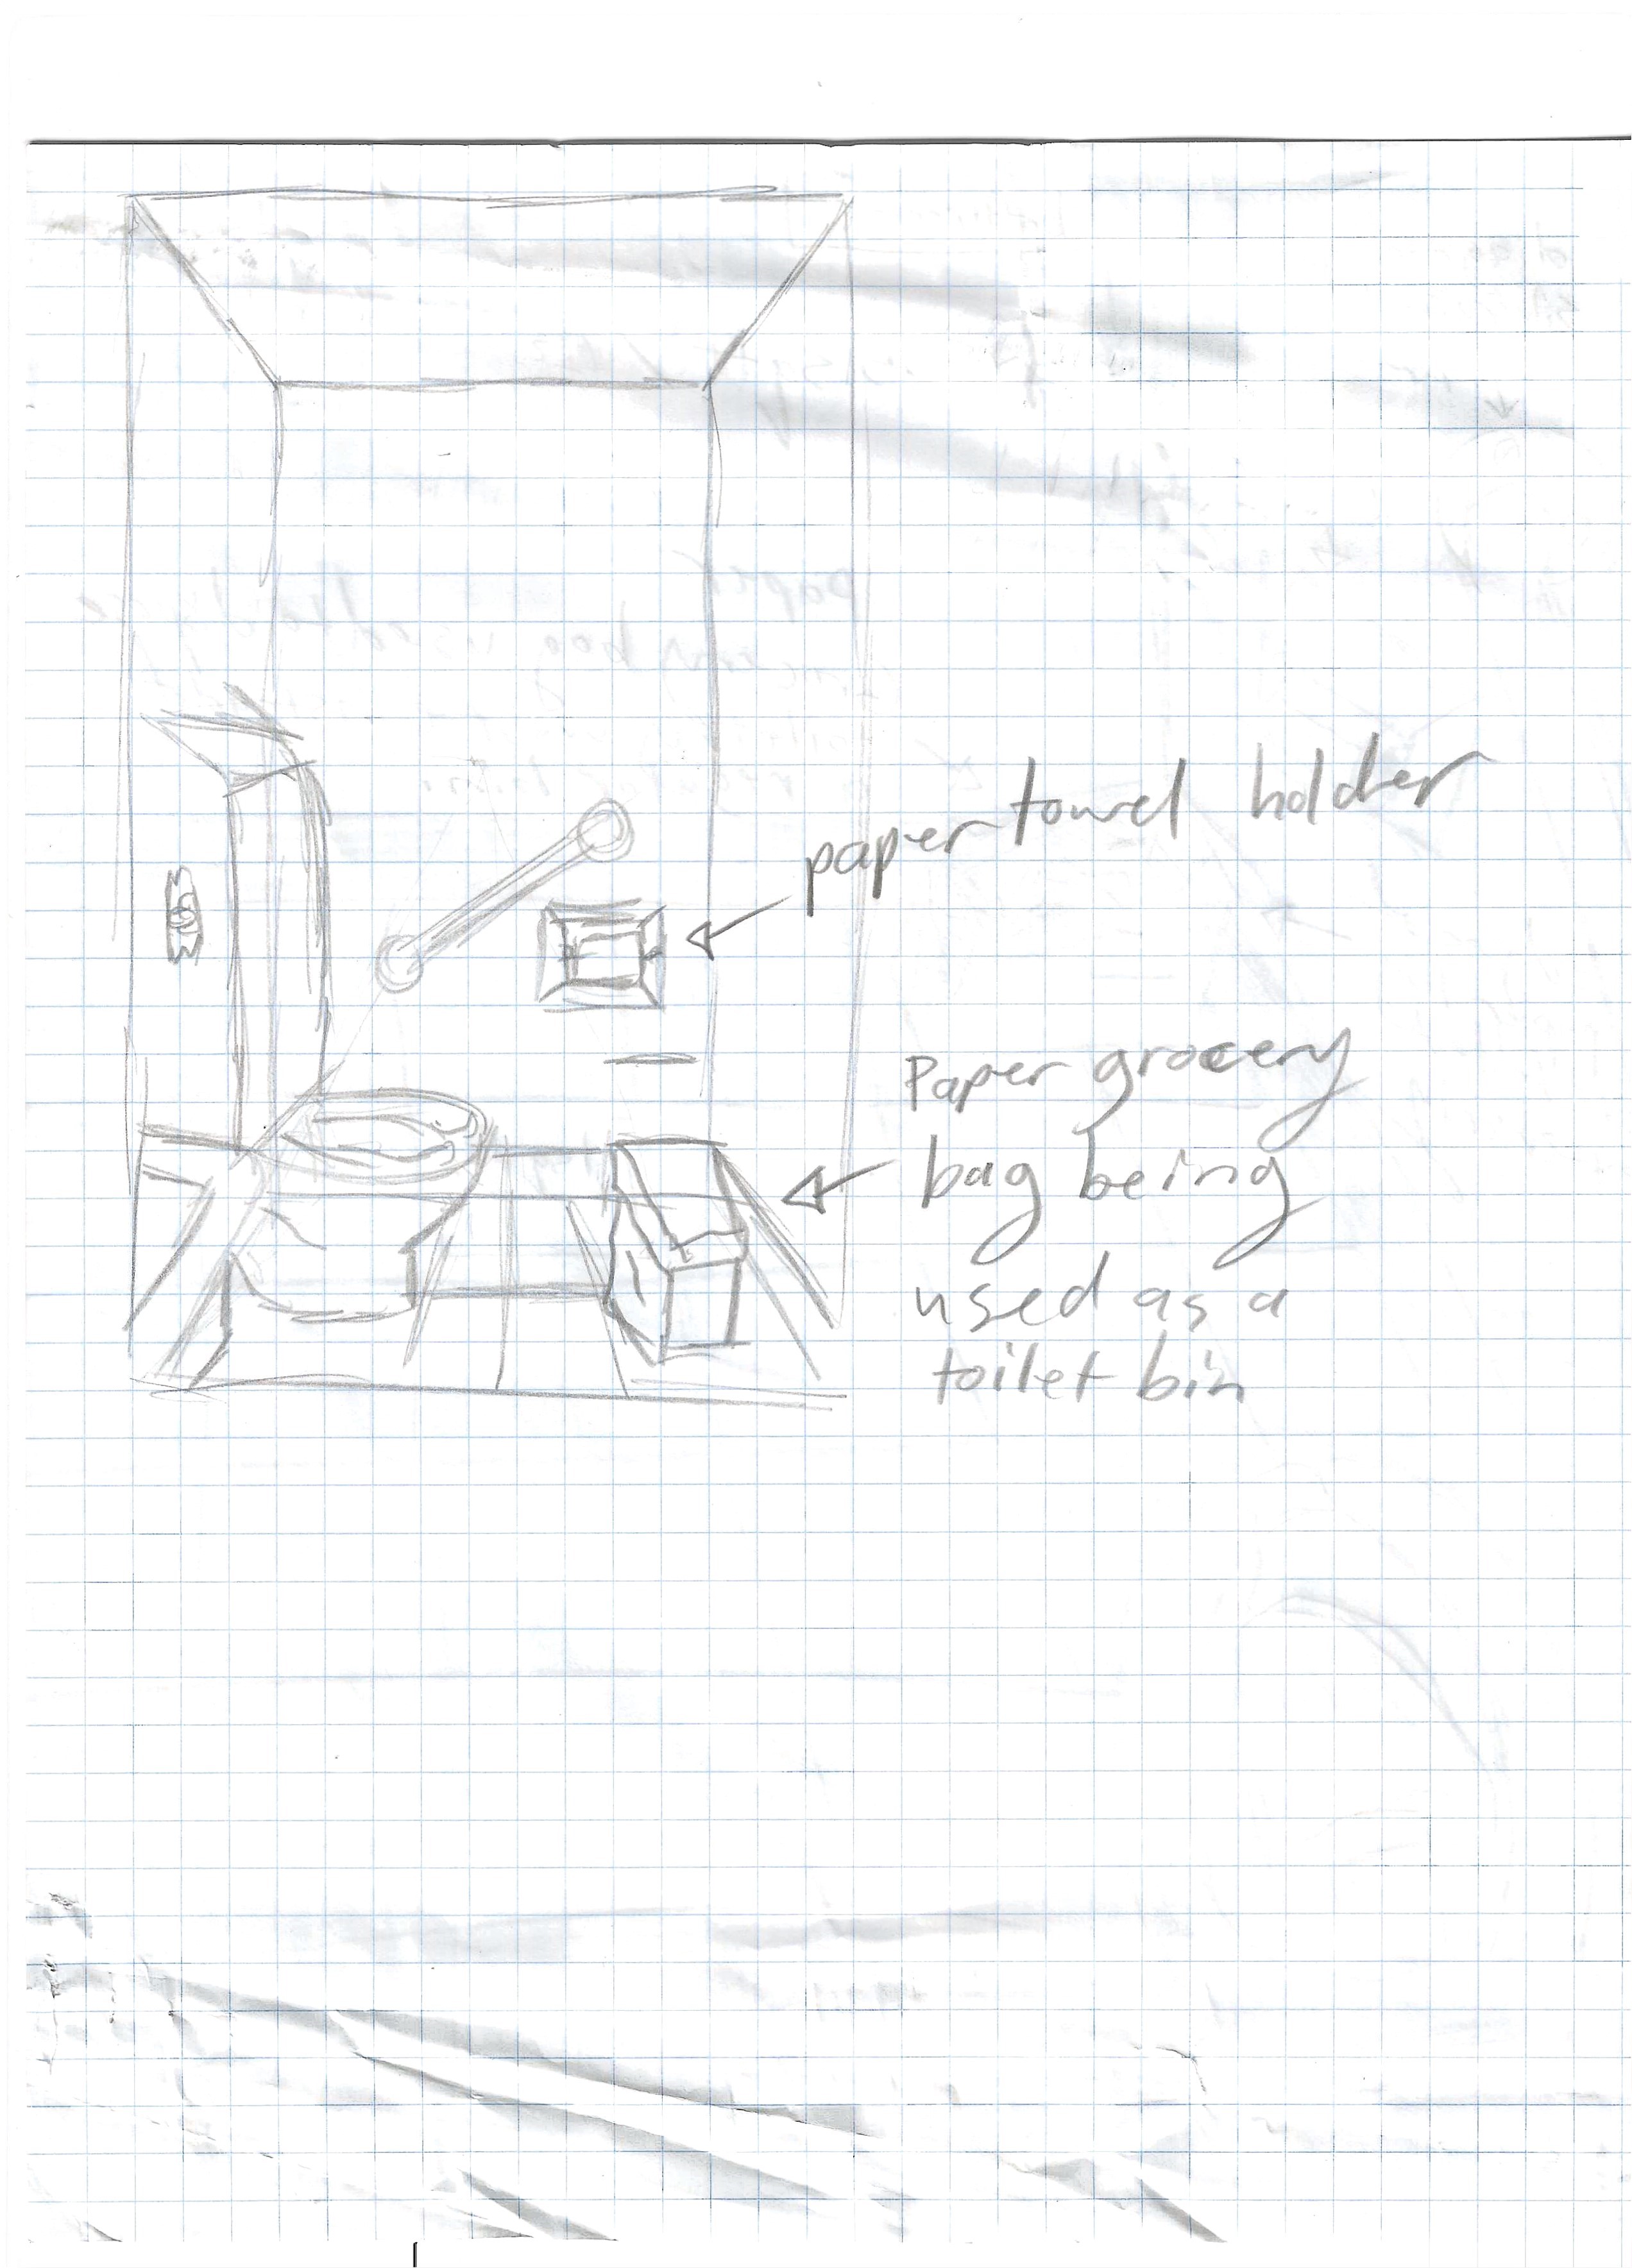 paper towel holder
Paper grocery
bag being
used as a
toilet bin